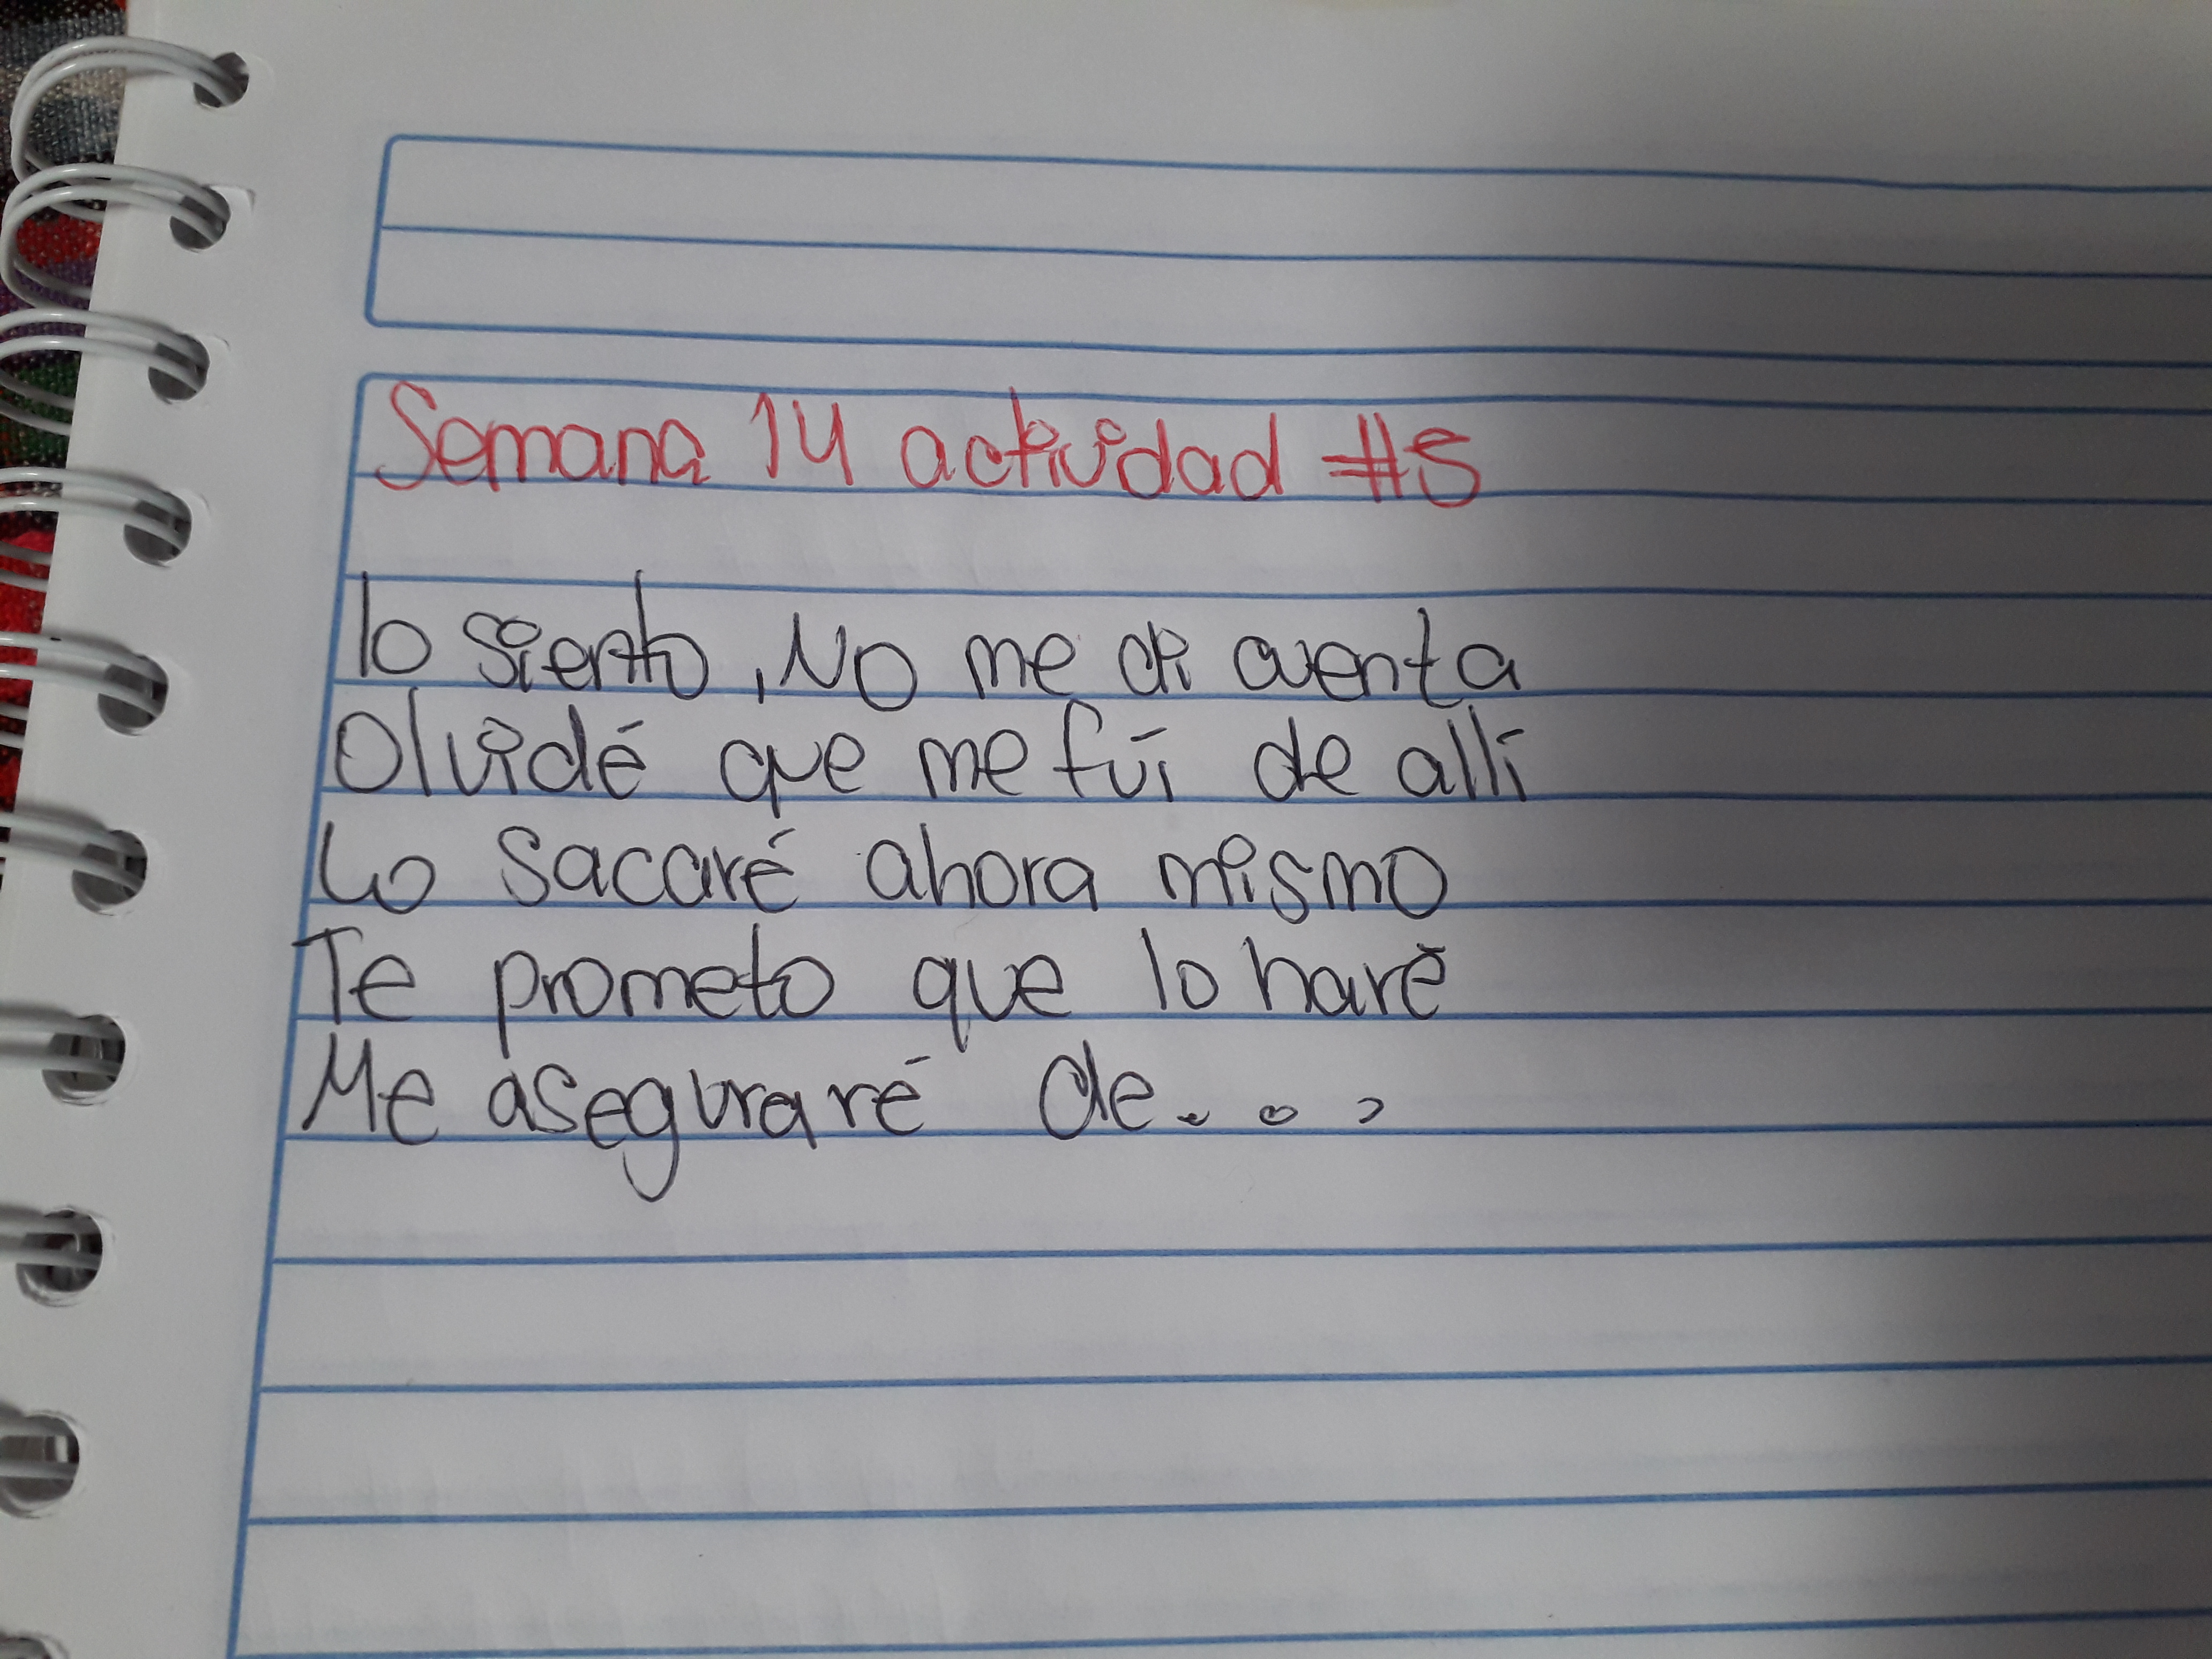 Semana 14 actividad #5
lo siento, No me di cuenta
Olvidé que me fuí de allí
Lo sacaré ahora mismo
Te prometo que lo haré
Me aseguraré de...